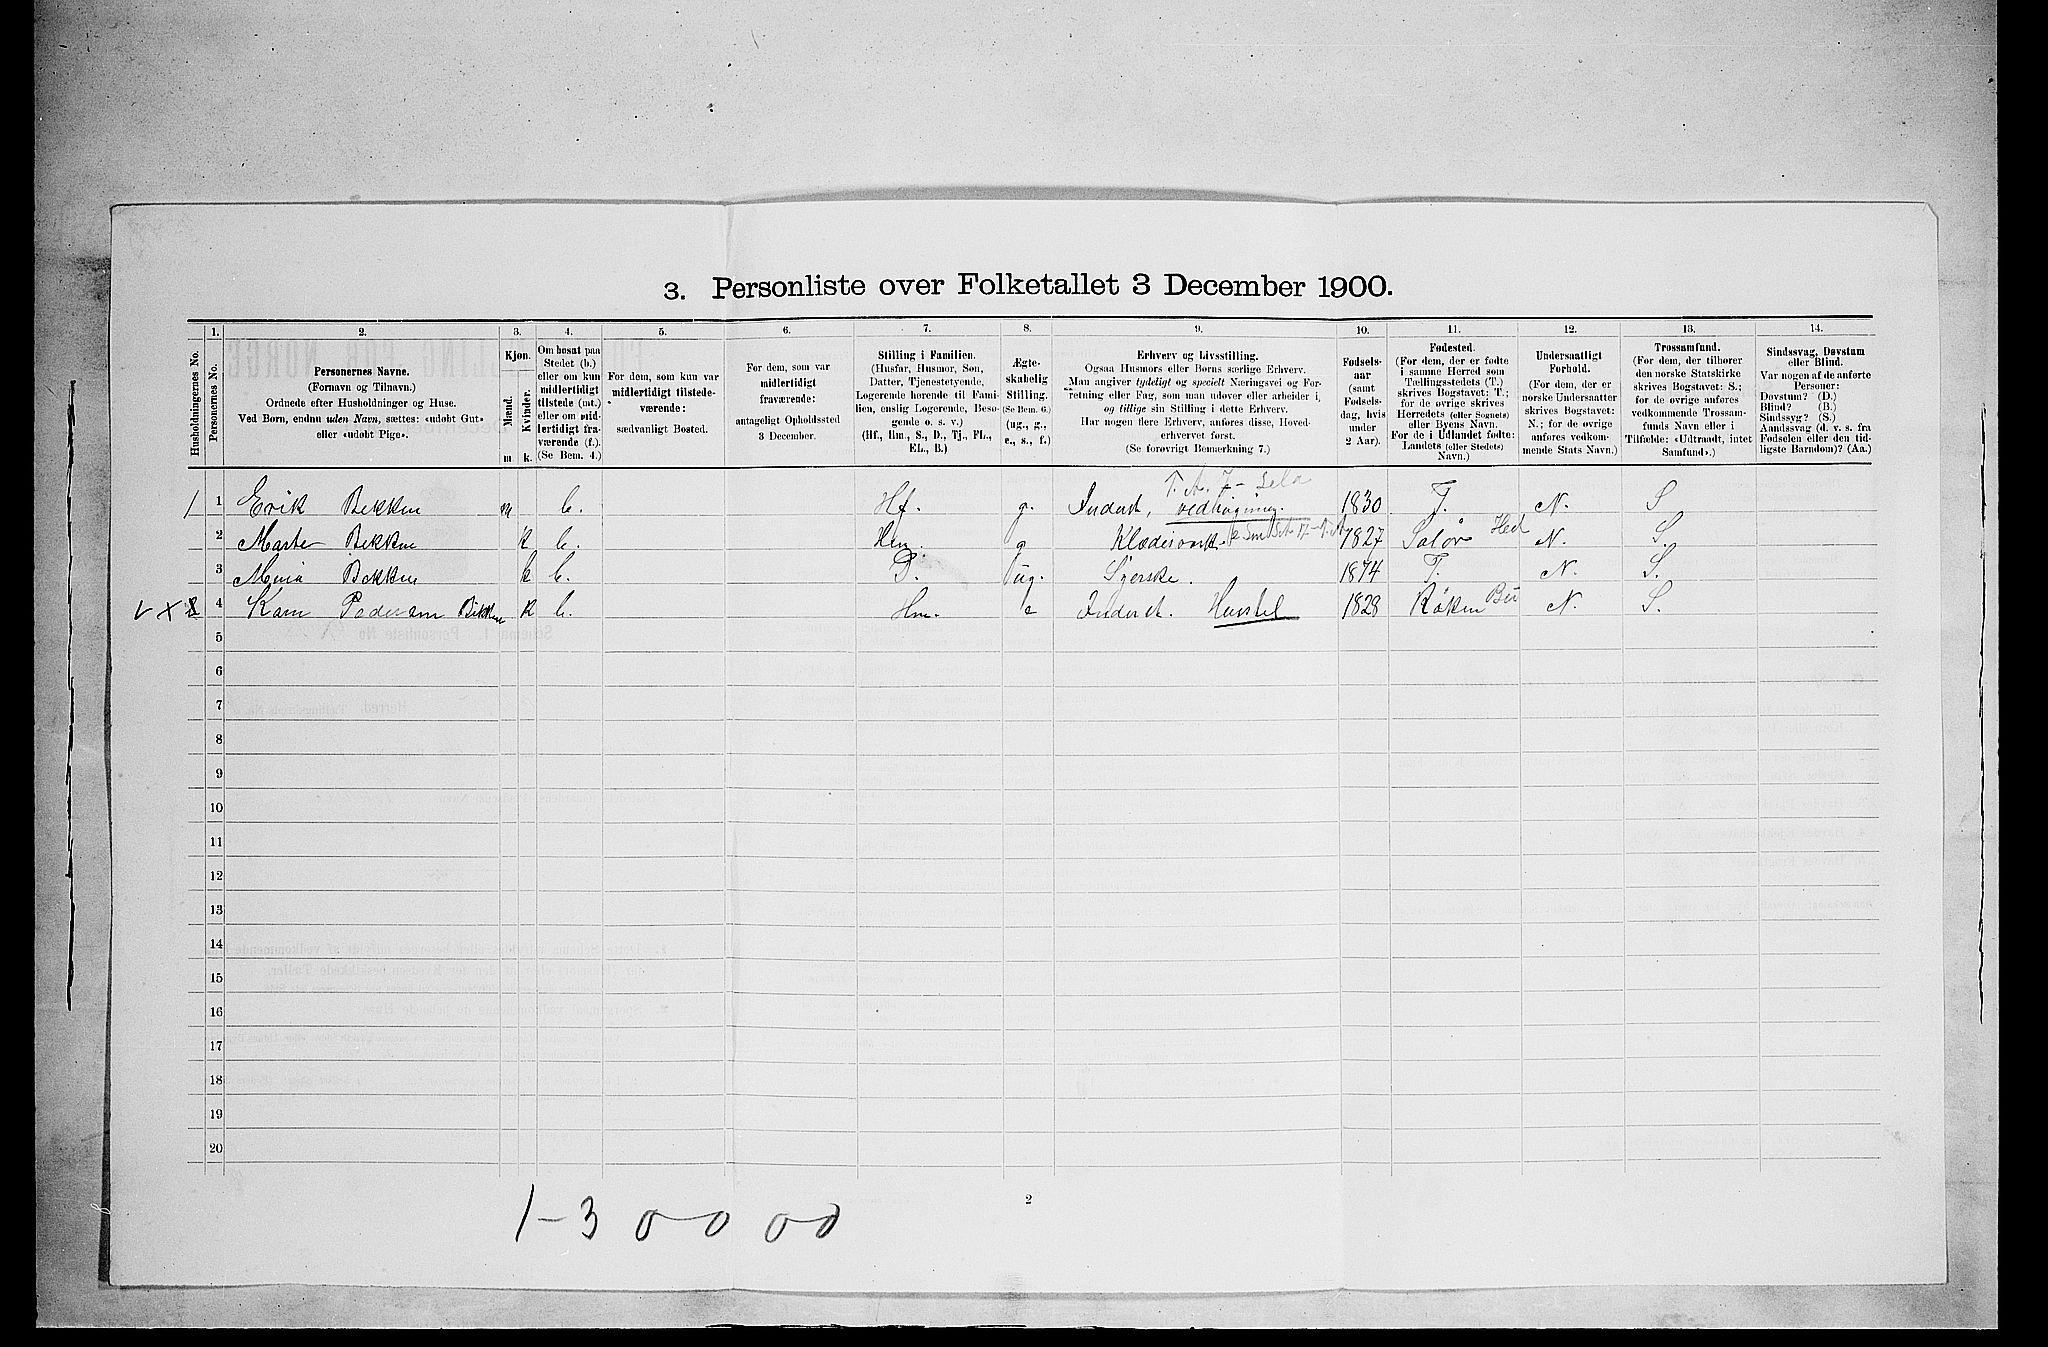 3. Personliste over Folketallet 3 December 1900.
1. 2. 3. 4. 5. 6. 7. 8. 9. 10. 11. 12. 13. 14.
Husholdningernes No.
Personernes No.
Personernes Navne.
(Fornavn og Tilnavn.)
Ordnede efter Husholdninger og Huse.
Ved Børn, endnu uden Navn, sættes: «udøbt Gut»
eller «udøbt Pige».
Kjøn.
Mænd.
Kvinder.
m. k.
Om bosat paa
Stedet (b.)
eller om kun
midlertidigt
tilstede (mt.)
eller om mid-
lertidigt fra-
værende (f.).
(Se Bem. 4.)
For dem, som kun var
midlertidigt tilstede-
værende:
sædvanligt Bosted.
For dem, som var
midlertidigt
fraværende:
antageligt Opholdssted
3 December.
Stilling i Familien.
(Husfar, Husmor, Søn,
Datter, Tjenestetyende,
Logerende hørende til Fami-
lien, enslig Logerende, Besø-
gende o. s. v.)
(Hf., Hm., S., D., Tj., FL.,
EL., B.)
Ægte-
skabelig
Stilling.
(Se Bem. 6.)
(ug., g.,
e., s., f.)
Erhverv og Livsstilling.
Ogsaa Husmors eller Børns særlige Erhverv.
Man angiver tydeligt og specielt Næringsvei og For-
retning eller Fag, som man udøver eller arbeider i,
og tillige sin Stilling i dette Erhverv.
Har nogen flere Erhverv, anføres disse, Hoved-
erhvervet først.
(Se forøvrigt Bemærkning 7.)
Fødsels-
aar
(samt
Fødsels-
dag, hvis
under
2 Aar).
Fødested.
(For dem, der er fødte
i samme Herred som
Tællingsstedets (T.)
skrives Bogstavet: T.;
for de øvrige skrives
Herredets (eller Sognets)
eller Byens Navn.
For de i Udlandet fødte:
Landets (eller Stedets)
Navn.)
Undersaatligt
Forhold.
(For dem, der er
norske Undersaatter
skrives Bogstavet:
N.; for de øvrige
anføres vedkom-
mende Stats Navn.)
Trossamfund.
(For dem, der tilhører
den norske Statskirke
skrives Bogstavet: S.;
for de øvrige anføres
vedkommende Trossam-
funds Navn eller i
Tilfælde: «Udtraadt, intet
Samfund».)
Sindssvag, Døvstum
eller Blind.
Var nogen af de anførte
Personer:
Døvstum? (D.)
Blind? (B.)
Sindssyg? (S.)
Aandssvag (d. v. s. fra
Fødselen eller den tid-
ligste Barndom)? (Aa.)
1 1 Erik Bekken m b. Hf. g. Inderst, vedhugning. 1830 T. N. S
2 Marte Bekken k b. Hm. g Klædesvask 1827 Solør Hed N. S.
3 Mina Bekken k b. D. ug. Syerske. 1874 T. N. S.
4 Karn Pedersen Bekken k b. Hm. e Inderst. Husstel 1828 Røken Bu N. S.
5
6
7
8
9
10
11
12
13
14
15
16
17
18
19
20
2
1-3 0-0 00